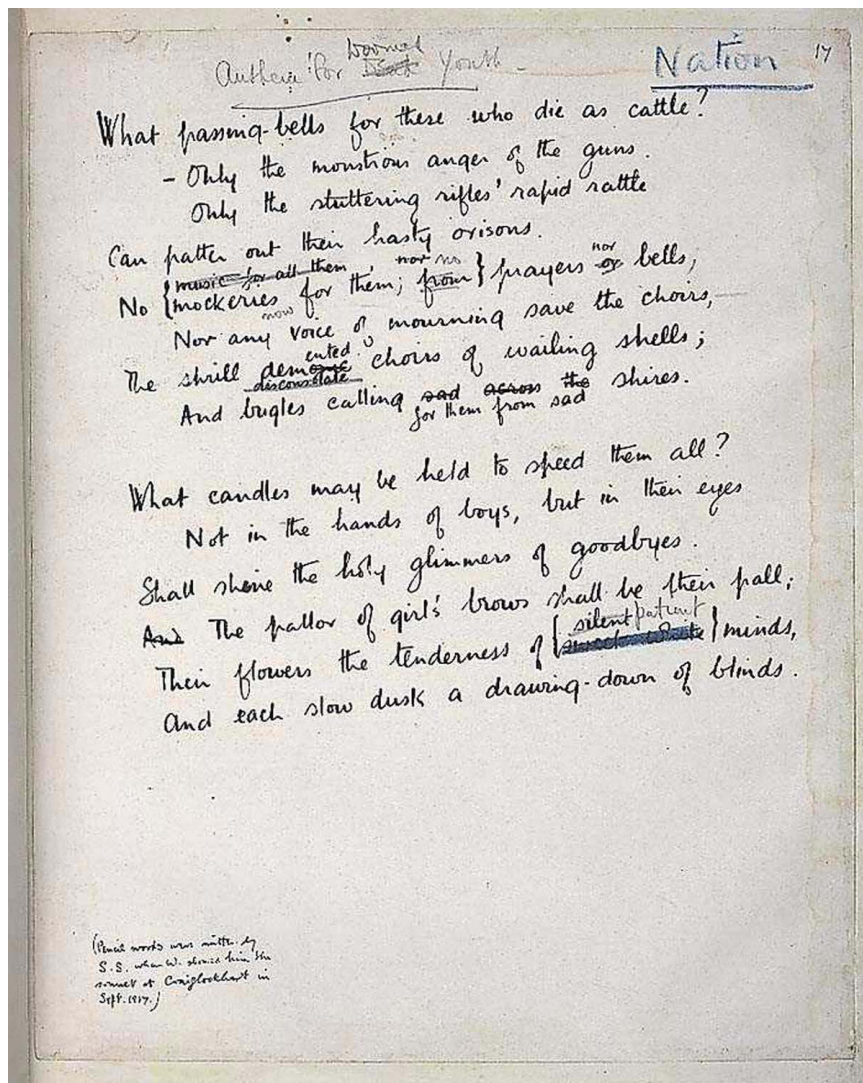 Anthem for Doomed Dead Youth -
Nation
17
What passing-bells for these who die as cattle?
- Only the monstrous anger of the guns.
Only the stuttering rifles' rapid rattle
Can patter out their hasty orisons.
music for all them nor no nor
No { mockeries for them; from } prayers or bells,
now
Nor any voice of mourning save the choirs,
ented
The shrill demonic choirs of wailing shells;
disconsolate
And bugles calling sad across the shires.
for them from sad
What candles may be held to speed them all?
Not in the hands of boys, but in their eyes
Shall shine the holy glimmers of goodbyes.
And The pallor of girl's brows shall be their pall;
silent patient
Their flowers the tenderness of { sweet white } minds,
And each slow dusk a drawing-down of blinds.
(Pencil words were written by
S.S. when W. showed him the
sonnet at Craiglockhart in
Sept. 1917.)